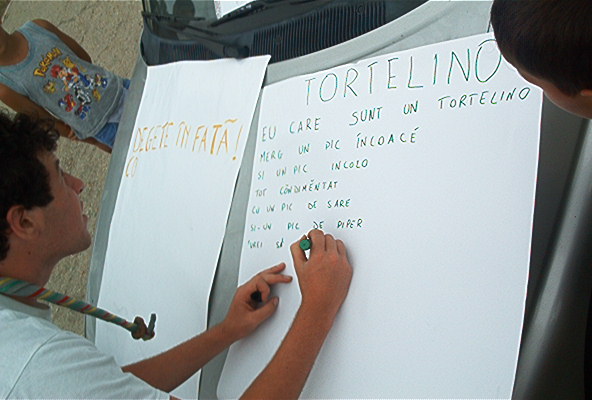 POKEMON
DEGETE ÎN FAȚĂ!
TORTELINO
EU CARE SUNT UN TORTELINO
MERG UN PIC ÎNCOACÉ
SI UN PIC INCOLO
TOT CONDIMENTAT
CU UN PIC DE SARE
SI-UN PIC DE PIPER
VREI SĂ